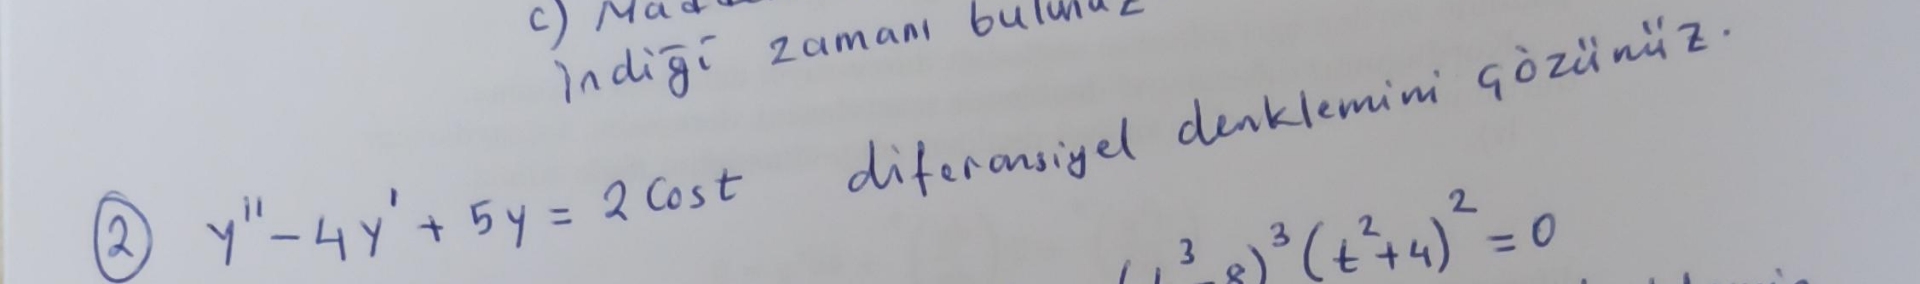 c)
indiği zamanı bulunuz
② y'' - 4y' + 5y = 2 Cost diferansiyel denklemini çözünüz.
³-8)³ (t²+4)² = 0